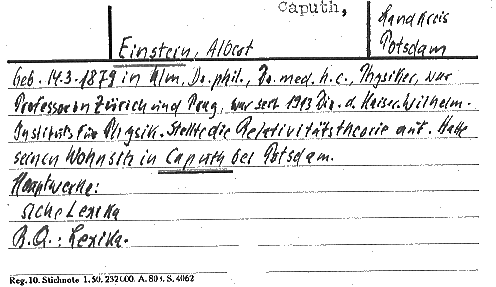 Caputh,
Landkreis
Potsdam
Einstein, Albert
Geb. 14.3.1879 in Ulm, Dr. phil., Dr. med. h.c., Physiker, war
Professor in Zürich und Prag, war seit 1913 Dir. d. Kaiser-Wilhelm-
Instituts für Physik. Stellte die Relativitätstheorie auf. Hatte
seinen Wohnsitz in Caputh bei Potsdam.
Hauptwerke:
siehe Lexika
B.Q.: Lexika.
Reg. 10. Stichnote 1. 50. 232000. A. 803. S. 4062